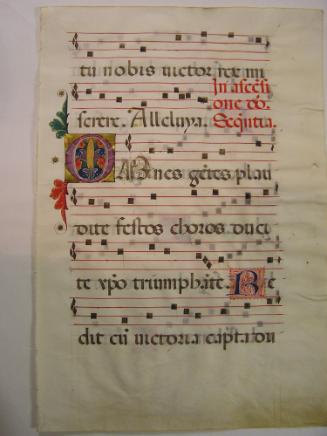 tu nobis victor rex mi
In ascēsi
one dō.
serere. Alleluya. Seq̄ntia.
OMnes gētes plau
dite festos choros duci
te xp̄o triumphāte. Re
dit cū victoria capta du